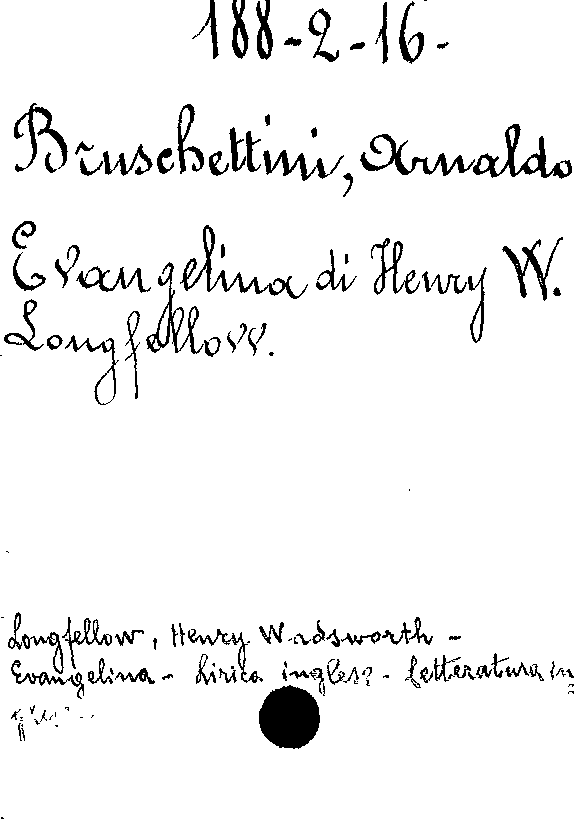 188-2-16-
Bruschettini, Arnaldo
Evangelina di Henry W.
Longfellow.
Longfellow, Henry Wadsworth -
Evangelina - Lirica inglese - Letteratura in